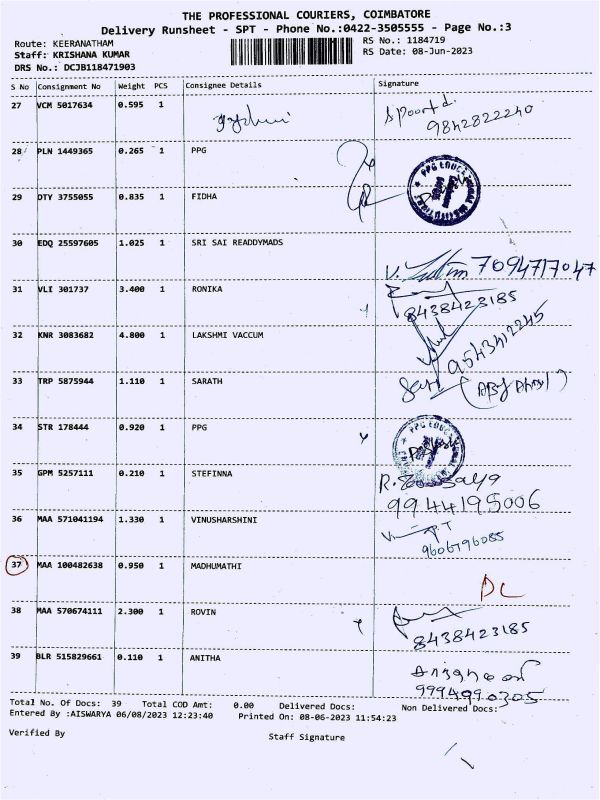 THE PROFESSIONAL COURIERS, COIMBATORE
Delivery Runsheet - SPT - Phone No.:0422-3505555 - Page No.:3
Route: KEERANATHAM
Staff: KRISHANA KUMAR
DRS No.: DCJB118471903
RS No.: 1184719
RS Date: 08-Jun-2023
S No Consignment No Weight PCS Consignee Details Signature
27 VCM 5017634 0.595 1
9842822240
28 PLN 1449365 0.265 1 PPG
PPG EDUCATIONAL INSTITUTIONS
29 DTY 3755055 0.835 1 FIDHA
30 EDQ 25597605 1.025 1 SRI SAI READDYMADS
7094717047
31 VLI 301737 3.400 1 RONIKA
8438423185
32 KNR 3083682 4.800 1 LAKSHMI VACCUM
9543412245
33 TRP 5875944 1.110 1 SARATH
34 STR 178444 0.920 1 PPG
PPG EDUC
35 GPM 5257111 0.210 1 STEFINNA
9944195006
36 MAA 571041194 1.330 1 VINUSHARSHINI
9606796085
37 MAA 100482638 0.950 1 MADHUMATHI
DL
38 MAA 570674111 2.300 1 ROVIN
8438423185
39 BLR 515829661 0.110 1 ANITHA
9994990305
Total No. Of Docs: 39 Total COD Amt: 0.00 Delivered Docs: Non Delivered Docs:
Entered By :AISWARYA 06/08/2023 12:23:40 Printed On: 08-06-2023 11:54:23
Verified By Staff Signature